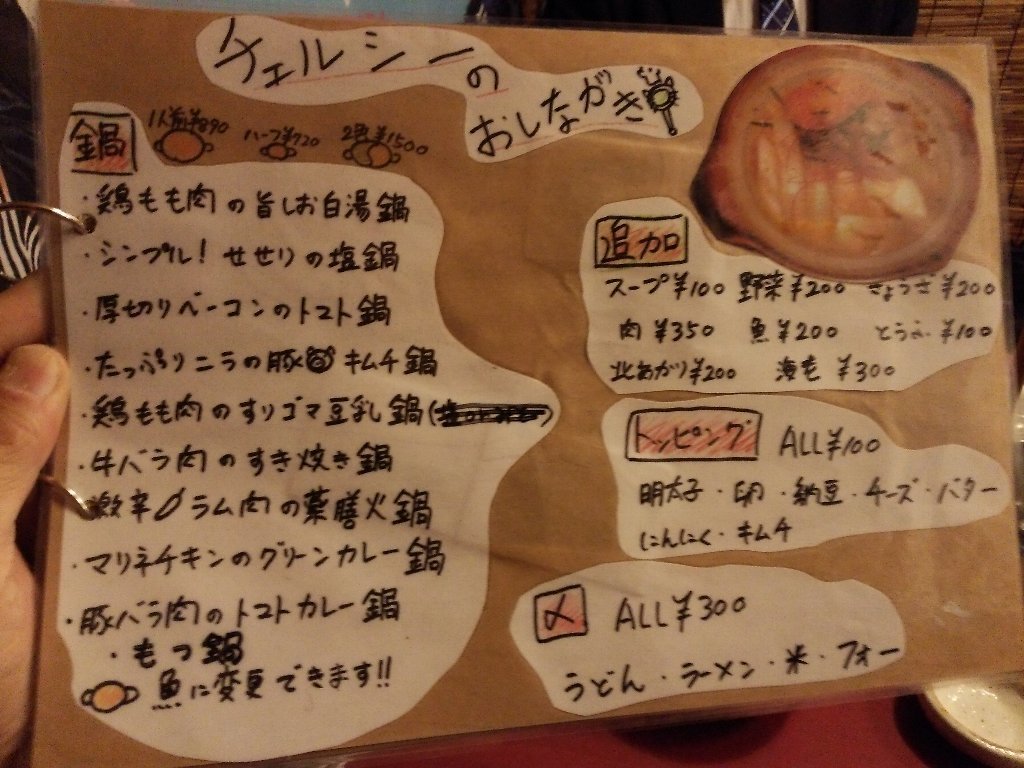 チェルシーの
おしながき
鍋 1人前¥890 ハーフ¥720 ¥1500
・鶏もも肉の旨しお白湯鍋
・シンプル!せせりの塩鍋
・厚切りベーコンのトマト鍋
・たっぷりニラの豚キムチ鍋
・鶏もも肉のすりゴマ豆乳鍋
・牛バラ肉のすき焼き鍋
激辛ラム肉の薬膳火鍋
・マリネチキンのグリーンカレー鍋
・豚バラ肉のトマトカレー鍋
・もつ鍋
魚に変更できます!!
追加
スープ¥100 野菜¥200 ぎょうざ¥200
肉¥350 魚¥200 とうふ¥100
北あかり¥200 ¥300
トッピング ALL¥100
明太子・卵・納豆・チーズ・バター
にんにく・キムチ
〆 ALL¥300
うどん・ラーメン・米・フォー